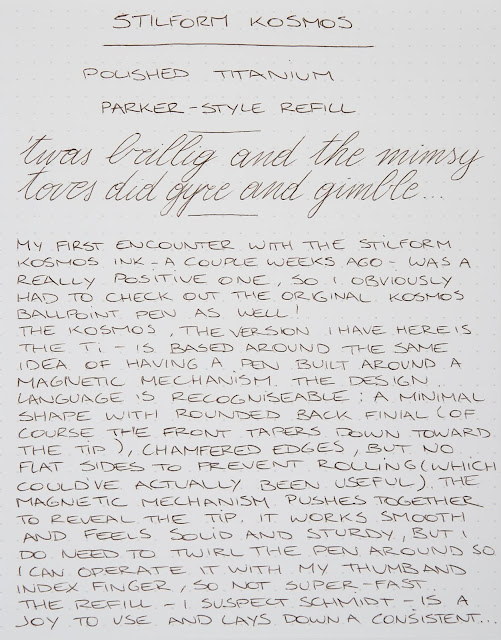 STILFORM KOSMOS
POLISHED TITANIUM
PARKER-STYLE REFILL
'twas brillig and the mimsy
toves did gyre and gimble...
MY FIRST ENCOUNTER WITH THE STILFORM
KOSMOS INK - A COUPLE WEEKS AGO - WAS A
REALLY POSITIVE ONE, SO I OBVIOUSLY
HAD TO CHECK OUT THE ORIGINAL KOSMOS
BALLPOINT PEN AS WELL!
THE KOSMOS, THE VERSION I HAVE HERE IS
THE Ti - IS BASED AROUND THE SAME
IDEA OF HAVING A PEN BUILT AROUND A
MAGNETIC MECHANISM. THE DESIGN
LANGUAGE IS RECOGNISEABLE: A MINIMAL
SHAPE WITH ROUNDED BACK FINIAL (OF
COURSE THE FRONT TAPERS DOWN TOWARD
THE TIP), CHAMFERED EDGES, BUT NO
FLAT SIDES TO PREVENT ROLLING (WHICH
COULD'VE ACTUALLY BEEN USEFUL). THE
MAGNETIC MECHANISM PUSHES TOGETHER
TO REVEAL THE TIP. IT WORKS SMOOTH
AND FEELS SOLID AND STURDY, BUT I
DO NEED TO TWIRL THE PEN AROUND SO
I CAN OPERATE IT WITH MY THUMB AND
INDEX FINGER, SO NOT SUPER-FAST.
THE REFILL - I SUSPECT SCHMIDT - IS A
JOY TO USE AND LAYS DOWN A CONSISTENT...